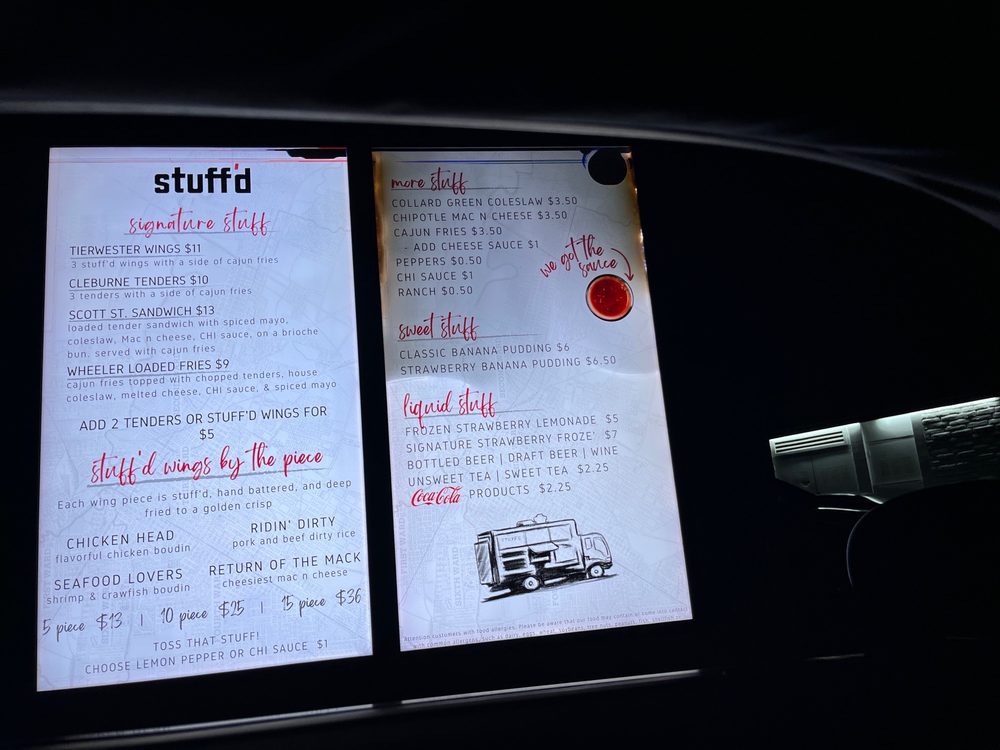 stuff'd
signature stuff
TIERWESTER WINGS $11
3 stuff'd wings with a side of cajun fries
CLEBURNE TENDERS $10
3 tenders with a side of cajun fries
SCOTT ST. SANDWICH $13
loaded tender sandwich with spiced mayo,
coleslaw, Mac n cheese, CHI sauce, on a brioche
bun. served with cajun fries
WHEELER LOADED FRIES $9
cajun fries topped with chopped tenders, house
coleslaw, melted cheese, CHI sauce, & spiced mayo
ADD 2 TENDERS OR STUFF'D WINGS FOR
$5
stuff'd wings by the piece
Each wing piece is stuff'd, hand battered, and deep
fried to a golden crisp
CHICKEN HEAD
flavorful chicken boudin
RIDIN' DIRTY
pork and beef dirty rice
SEAFOOD LOVERS
shrimp & crawfish boudin
RETURN OF THE MACK
cheesiest mac n cheese
5 piece $13 | 10 piece $25 | 15 piece $36
TOSS THAT STUFF!
CHOOSE LEMON PEPPER OR CHI SAUCE $1
more stuff
COLLARD GREEN COLESLAW $3.50
CHIPOTLE MAC N CHEESE $3.50
CAJUN FRIES $3.50
- ADD CHEESE SAUCE $1
PEPPERS $0.50
CHI SAUCE $1
RANCH $0.50
we got the
sauce
sweet stuff
CLASSIC BANANA PUDDING $6
STRAWBERRY BANANA PUDDING $6.50
liquid stuff
FROZEN STRAWBERRY LEMONADE $5
SIGNATURE STRAWBERRY FROZE' $7
BOTTLED BEER | DRAFT BEER | WINE
UNSWEET TEA | SWEET TEA $2.25
Coca-Cola PRODUCTS $2.25
STUFF'D
Attention customers with food allergies. Please be aware that our food may contain or come into contact
with common allergens, such as dairy, eggs, wheat, soybeans, tree nuts, peanuts, fish, shellfish or